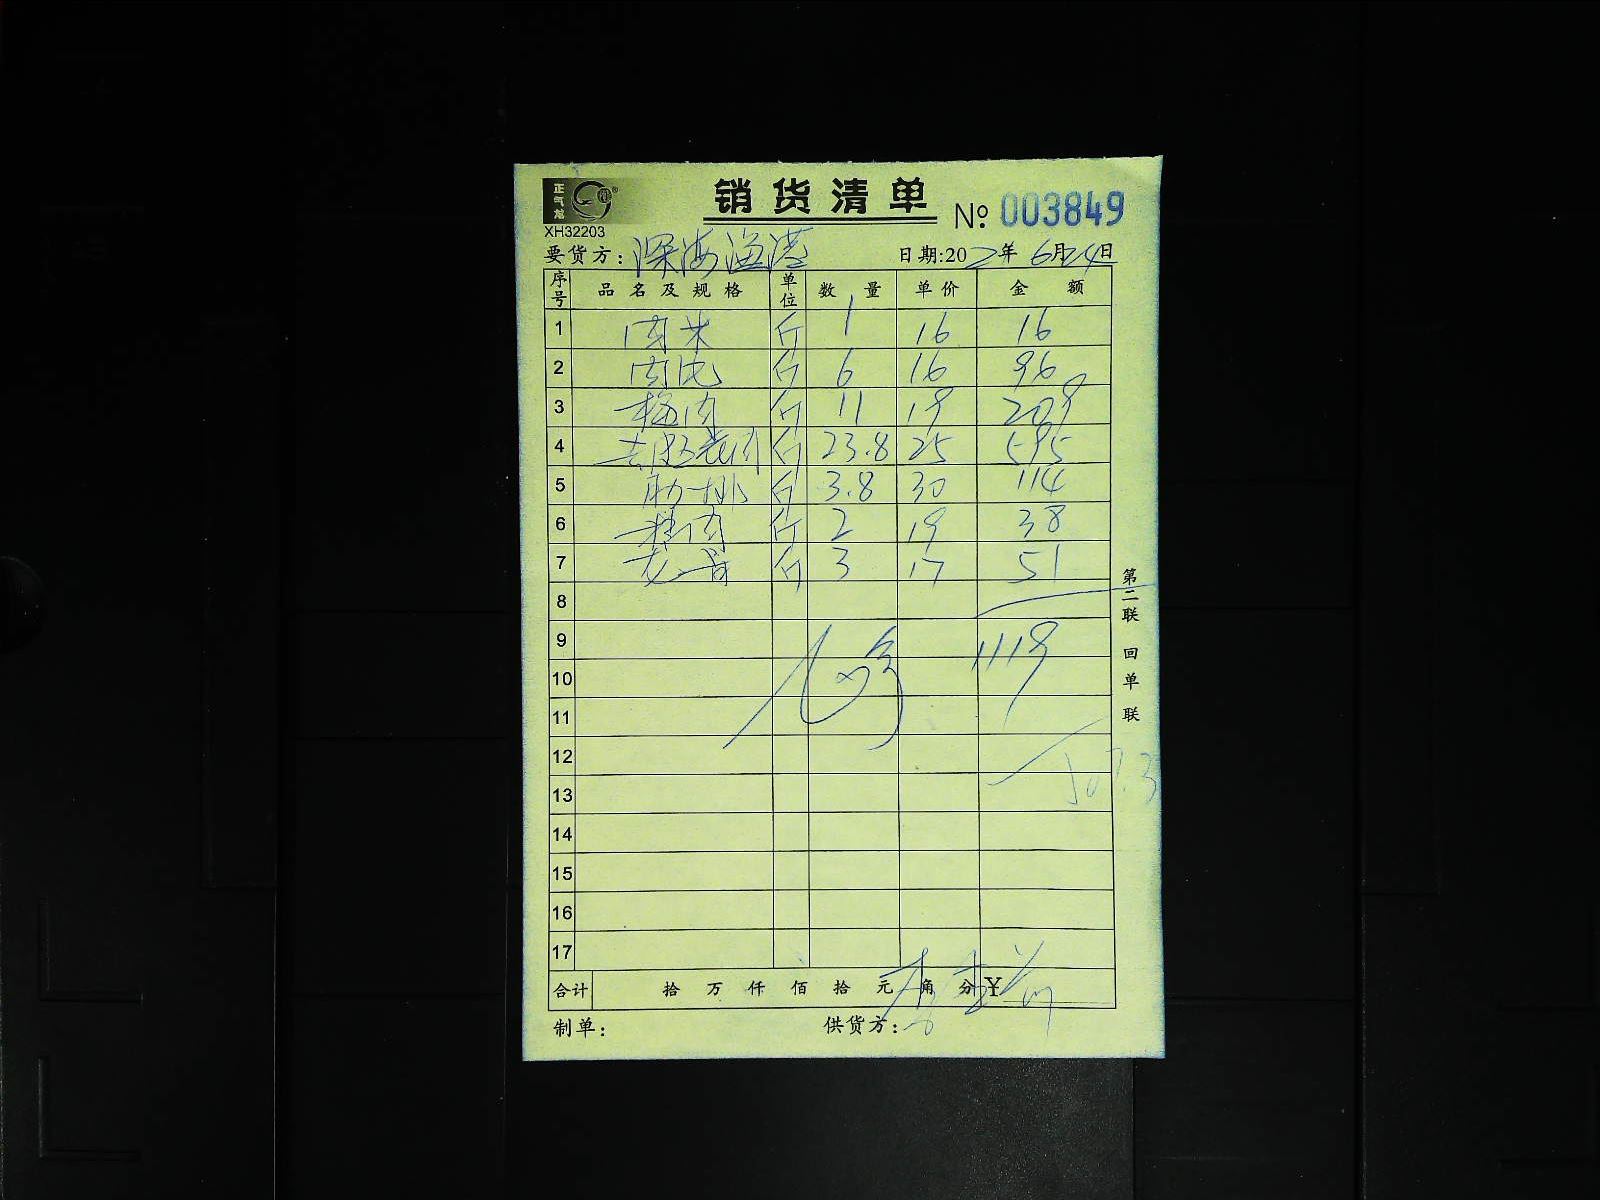 正气龙
销货清单
№ 003849
XH32203
要货方:深海渔港 日期:202 年 6月24日
序号 品名及规格 单位 数量 单价 金额
1 肉米 斤 1 16 16
2 肉沫 斤 6 16 96
3 梅肉 斤 11 19 209
4 斤 23.8 25 595
5 肋排 斤 3.8 30 114
6 精肉 斤 2 19 38
7 斤 3 17 51
8
9 1119
10
11
12
13
14
15
16
17
合计 拾 万 仟 佰 拾 元 角 分 ¥
制单: 供货方:
第二联 回单联